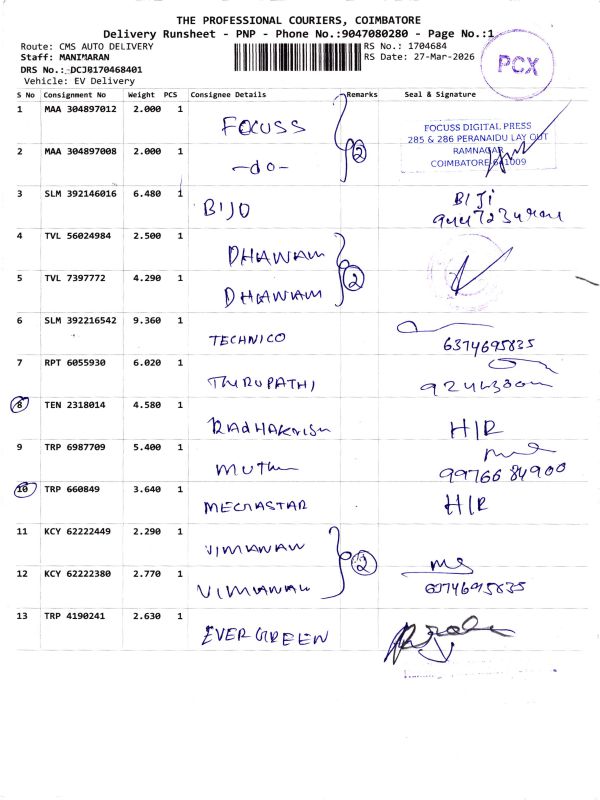 THE PROFESSIONAL COURIERS, COIMBATORE
Delivery Runsheet - PNP - Phone No.:9047080280 - Page No.:1
Route: CMS AUTO DELIVERY
RS No.: 1704684
Staff: MANIMARAN
RS Date: 27-Mar-2026
DRS No.: DCJB170468401
Vehicle: EV Delivery
PCX
S No Consignment No Weight PCS Consignee Details Remarks Seal & Signature
1 MAA 304897012 2.000 1 FOCUSS
FOCUSS DIGITAL PRESS
285 & 286 PERANAIDU LAY OUT
RAMNAGAR
COIMBATORE 641009
2 MAA 304897008 2.000 1 -do- 2
3 SLM 392146016 6.480 1 BIJO BIJI
4 TVL 56024984 2.500 1 DHANAM
5 TVL 7397772 4.290 1 DHANAM 2
6 SLM 392216542 9.360 1 TECHNICO 6374695835
7 RPT 6055930 6.020 1 THIRUPATHI
8 TEN 2318014 4.580 1 RADHAKRISH H/R
9 TRP 6987709 5.400 1 MUTHU 9976684900
10 TRP 660849 3.640 1 MECHASTAR H/R
11 KCY 62222449 2.290 1 VIMANAN
12 KCY 62222380 2.770 1 VIMANAN 2 6374695835
13 TRP 4190241 2.630 1 EVERGREEN